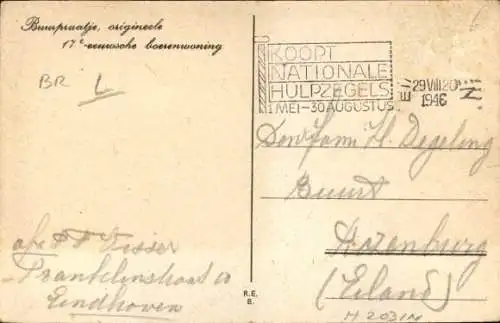 Buurpraatje, origineele
17e-eeuwsche boerenwoning
BR L
KOOPT
NATIONALE
HULPZEGELS
1 MEI-30 AUGUSTUS
29 VIII 20
1946
Den Fam H. Degeling
Buurt
Rozenburg
(Eiland)
H 2031N
afz. F F Visser
Franklinstraat
Eindhoven
R.E.
B.